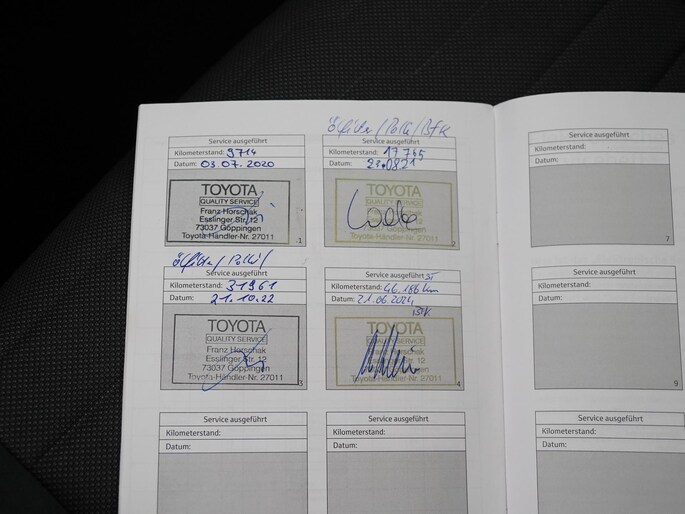 Service ausgeführt
Kilometerstand: 9714
Datum: 03.07.2020
TOYOTA
QUALITY SERVICE
Franz Horschak
Esslinger Str. 12
73037 Göppingen
Toyota-Händler-Nr. 27011
1
Ölfilter/Polle/BFK
Service ausgeführt
Kilometerstand: 17 765
Datum: 23.0821
TOYOTA
QUALITY SERVICE
Franz Horschak
Esslinger Str. 12
73037 Göppingen
Toyota-Händler-Nr. 27011
2
Ölfilter/Polle/
Service ausgeführt
Kilometerstand: 31961
Datum: 21.10.22
TOYOTA
QUALITY SERVICE
Franz Horschak
Esslinger Str. 12
73037 Göppingen
Toyota-Händler-Nr. 27011
3
Service ausgeführt
Kilometerstand: 46.186 km
Datum: 21.06.2024
TOYOTA
QUALITY SERVICE
Franz Horschak
Esslinger Str. 12
73037 Göppingen
Toyota-Händler-Nr. 27011
4
Service ausgeführt
Kilometerstand:
Datum:
Service ausgeführt
Kilometerstand:
Datum:
Service ausgeführt
Kilometerstand:
Datum:
7
Service ausgeführt
Kilometerstand:
Datum:
9
Service ausgeführt
Kilometerstand:
Datum: